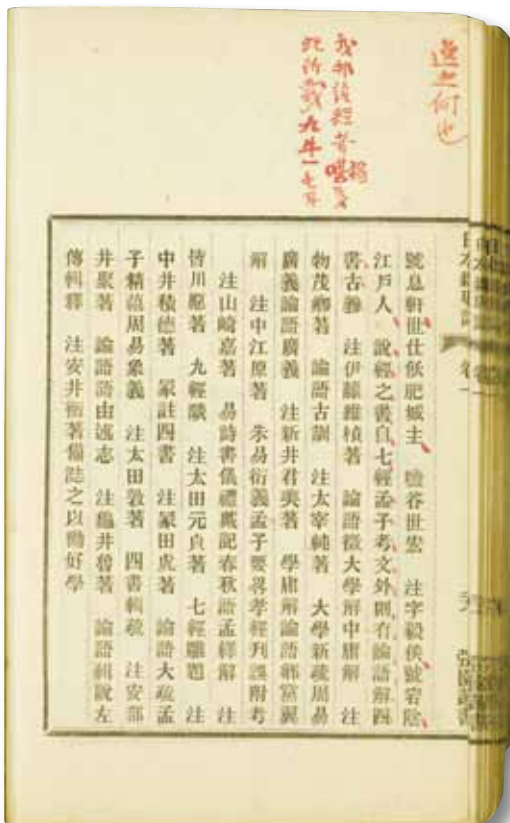 逸之何也
我邦說經者
此所
九牛一毛耳
號息軒世仕飫肥城主　鹽谷世宏　注字毅侯號宕陰
江戶人　說經之書自七經孟子考文外則有論語解四
書古義　注伊藤維楨著　論語徵大學解中庸解　注
物茂卿著　論語古訓　注太宰純著　大學新疏周易
廣義論語廣義　注新井君美著　學庸解論語鄉黨翼
解　注中江原著　朱易衍義孟子要畧孝經刋誤附考
注山崎嘉著　易詩書儀禮戴記春秋語孟繹解　注
皆川愿著　九經談　注太田元貞著　七經雕題　注
中井積德著　冢註四書　注冢田虎著　論語大疏孟
子精蘊周易象義　注太田敦著　四書輯疏　注安部
井褧著　論語語由述志　注龜井魯著　論語輯說左
傳輯釋　注安井衡著備誌之以勵好學
卷一